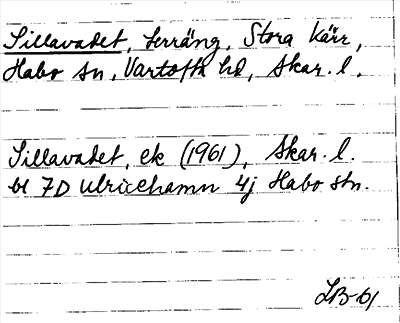 Sillavadet, terräng, Stora Kärr,
Habo sn, Vartofta hd, Skar. l.
Sillavadet, ek (1961), Skar. l.
bl 7D Ulricehamn 4j Habo stn.
LB-61